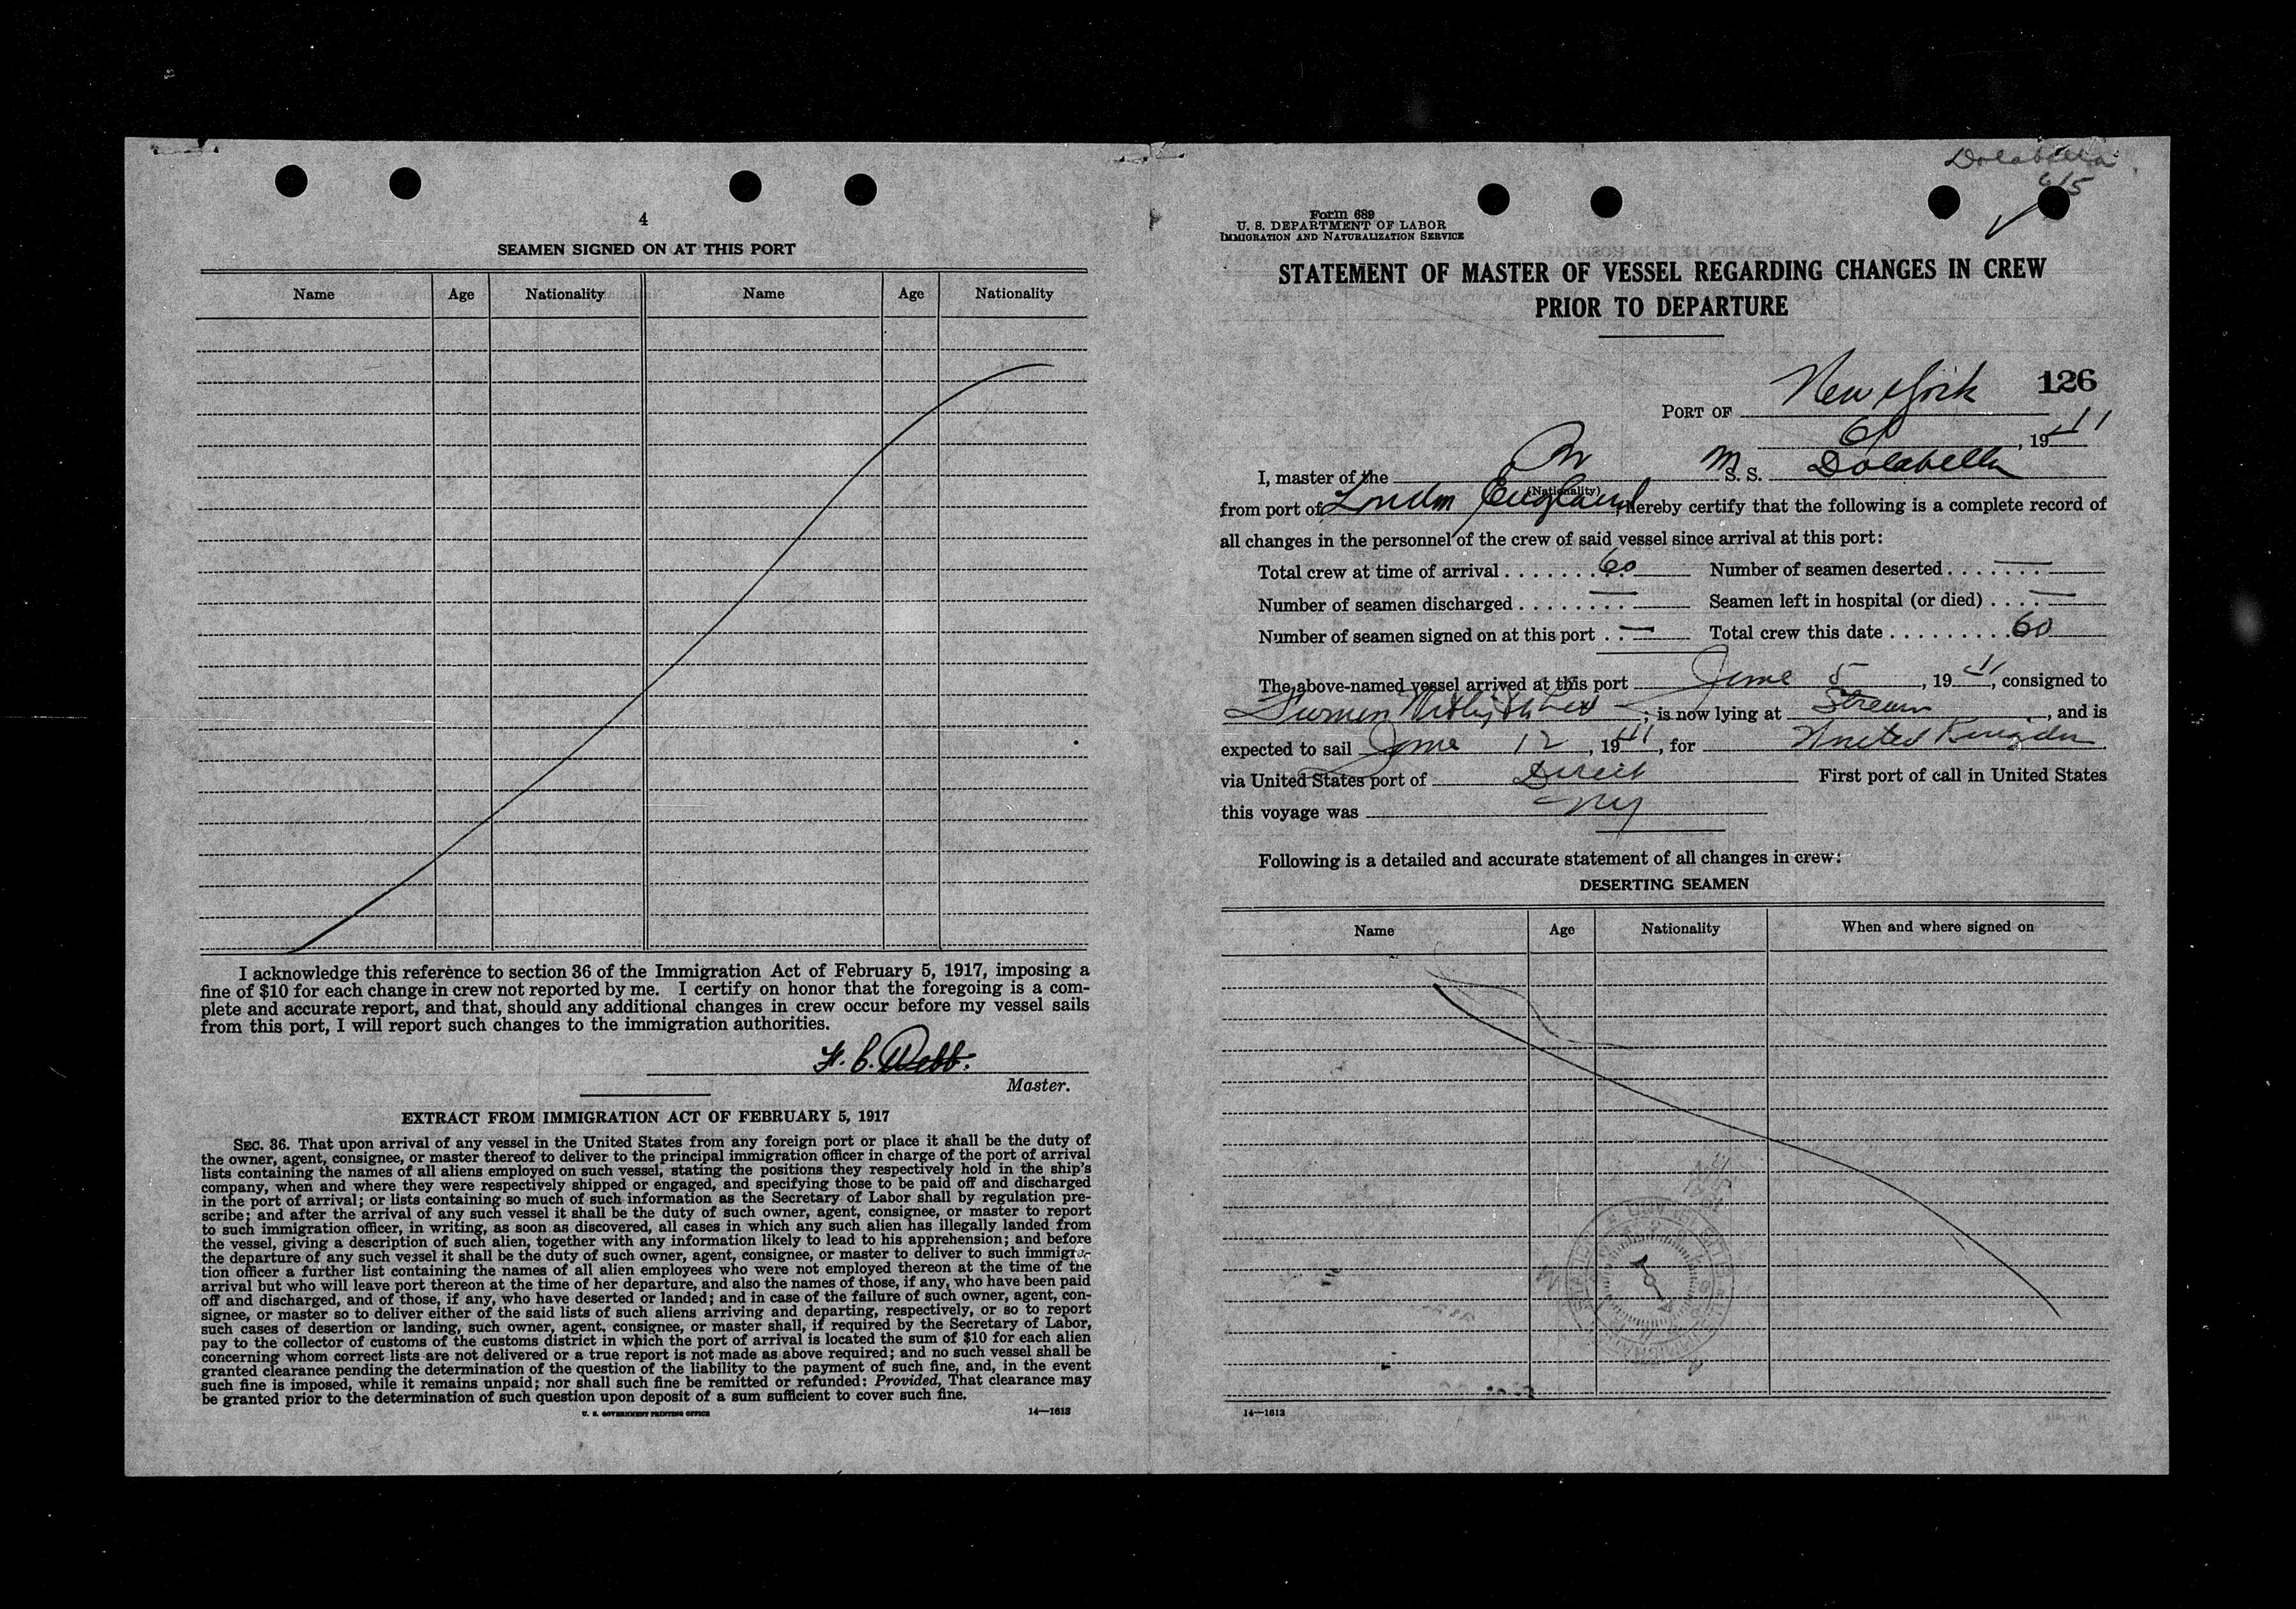 4
SEAMEN SIGNED ON AT THIS PORT
Name Age Nationality Name Age Nationality
I acknowledge this reference to section 36 of the Immigration Act of February 5, 1917, imposing a
fine of $10 for each change in crew not reported by me. I certify on honor that the foregoing is a com-
plete and accurate report, and that, should any additional changes in crew occur before my vessel sails
from this port, I will report such changes to the immigration authorities.
Webb.
Master.
EXTRACT FROM IMMIGRATION ACT OF FEBRUARY 5, 1917
SEC. 36. That upon arrival of any vessel in the United States from any foreign port or place it shall be the duty of
the owner, agent, consignee, or master thereof to deliver to the principal immigration officer in charge of the port of arrival
lists containing the names of all aliens employed on such vessel, stating the positions they respectively hold in the ship's
company, when and where they were respectively shipped or engaged, and specifying those to be paid off and discharged
in the port of arrival; or lists containing so much of such information as the Secretary of Labor shall by regulation pre-
scribe; and after the arrival of any such vessel it shall be the duty of such owner, agent, consignee, or master to report
to such immigration officer, in writing, as soon as discovered, all cases in which any such alien has illegally landed from
the vessel, giving a description of such alien, together with any information likely to lead to his apprehension; and before
the departure of any such vessel it shall be the duty of such owner, agent, consignee, or master to deliver to such immigra-
tion officer a further list containing the names of all alien employees who were not employed thereon at the time of the
arrival but who will leave port thereon at the time of her departure, and also the names of those, if any, who have been paid
off and discharged, and of those, if any, who have deserted or landed; and in case of the failure of such owner, agent, con-
signee, or master so to deliver either of the said lists of such aliens arriving and departing, respectively, or so to report
such cases of desertion or landing, such owner, agent, consignee, or master shall, if required by the Secretary of Labor,
pay to the collector of customs of the customs district in which the port of arrival is located the sum of $10 for each alien
concerning whom correct lists are not delivered or a true report is not made as above required; and no such vessel shall be
granted clearance pending the determination of the question of the liability to the payment of such fine, and, in the event
such fine is imposed, while it remains unpaid; nor shall such fine be remitted or refunded: Provided, That clearance may
be granted prior to the determination of such question upon deposit of a sum sufficient to cover such fine.
U. S. GOVERNMENT PRINTING OFFICE 14—1613
Dolabella
6/5
Form 689
U. S. DEPARTMENT OF LABOR
IMMIGRATION AND NATURALIZATION SERVICE
STATEMENT OF MASTER OF VESSEL REGARDING CHANGES IN CREW
PRIOR TO DEPARTURE
126
PORT OF New York
, 19
I, master of the Br M S. S. Dolabella
(Nationality)
from port of London England, hereby certify that the following is a complete record of
all changes in the personnel of the crew of said vessel since arrival at this port:
Total crew at time of arrival . . . . . . . 60 Number of seamen deserted . . . . . . . —
Number of seamen discharged . . . . . . . . — Seamen left in hospital (or died) . . . . —
Number of seamen signed on at this port . . — Total crew this date . . . . . . . . . 60
The above-named vessel arrived at this port June 5, 19, consigned to
Furness Withy & Co Ltd; is now lying at Stream, and is
expected to sail June 12, 19, for United Kingdom
via United States port of Direct First port of call in United States
this voyage was NY
Following is a detailed and accurate statement of all changes in crew:
DESERTING SEAMEN
Name Age Nationality When and where signed on
14—1613